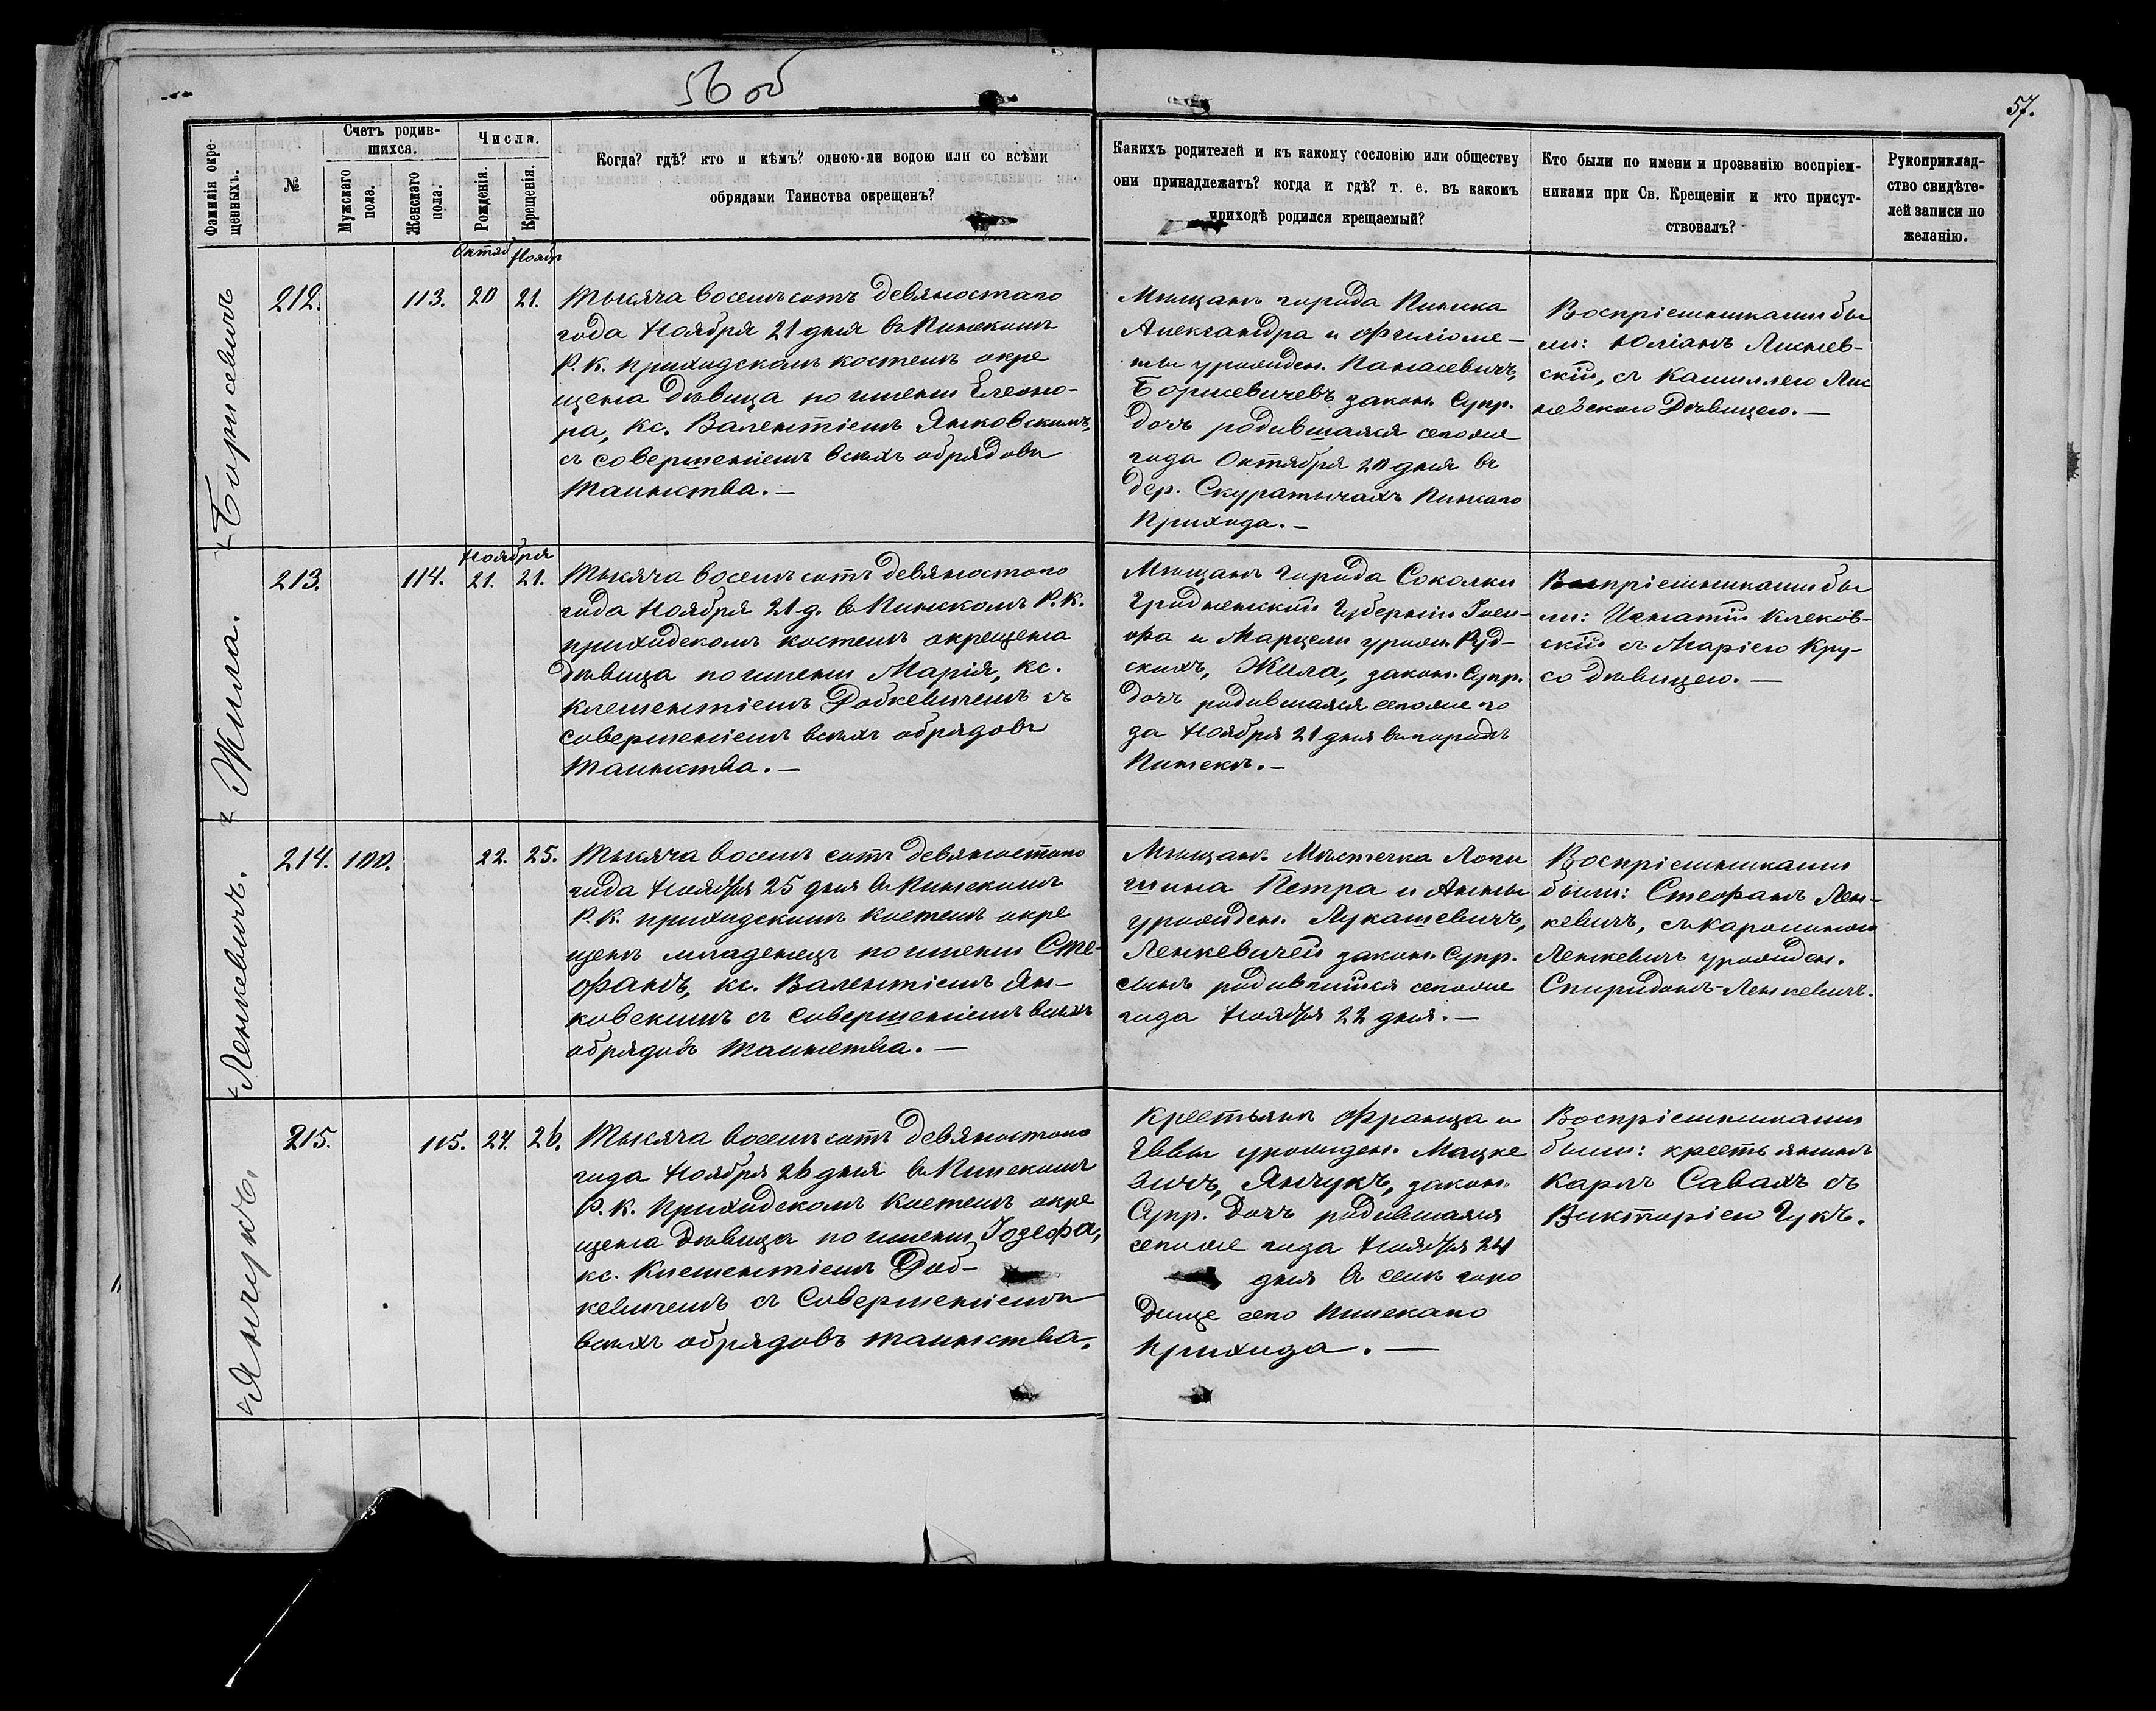 56 об
57.
Фамилія окрещенныхъ.
№
Счетъ родившихся.
Мужскаго пола.
Женскаго пола.
Числа.
Рожденія.
Крещенія.
Когда? гдѣ? кто и кѣмъ? одною-ли водою или со всѣми
обрядами Таинства окрещенъ?
Какихъ родителей и къ какому сословію или обществу
они принадлежатъ? когда и гдѣ? т. е. въ какомъ
приходѣ родился крещаемый?
Кто были по имени и прозванію воспріем-
никами при Св. Крещеніи и кто присут-
ствовалъ?
Рукоприклад-
ство свидѣте-
лей записи по
желанію.
Борисевичъ
212.
113.
Октяб
20
Ноябр
21.
Тысяча восемьсотъ девяностаго
года Ноября 21 дня въ Пинскомъ
Р. К. приходскомъ костелѣ окре
щена дѣвица по имени Елеоно-
ра, кс. Валентіемъ Янковскимъ,
съ совершеніемъ всѣхъ обрядовъ
Таинства. —
Мѣщанъ города Пинска
Александра и Филоме-
ны урожден. Панасевичъ,
Борисевичевъ закон. Супр.
дочь родившаяся сегоже
года Октября 20 дня въ
дер. Скуратычахъ Пинскаго
Прихода. —
Воспріемниками бы
ли: Юліанъ Лиснев-
скій, съ Камиллею Лис
невскою Дѣвицею. —
Жила.
213.
114.
Ноября
21.
21.
Тысяча восемьсотъ девяностого
года Ноября 21 д. въ Пинскомъ Р. К.
приходскомъ костелѣ окрещена
дѣвица по имени Марія, кс.
Клементіемъ Добкевичемъ съ
совершеніемъ всѣхъ обрядовъ
Таинства. —
Мѣщанъ города Соколки
Гродненской Губерніи Іоси-
фа и Марцели урожд. Руд-
скихъ, Жила, закон. Супр.
дочь родившаяся сегоже го
да Ноября 21 дня въ городѣ
Пинскѣ. —
Воспріемниками бы
ли: Игнатій Клеков-
скій съ Маріею Кру-
со дѣвицею. —
Ленкевичъ.
214.
100.
22.
25.
Тысяча восемь сотъ девяностого
года Ноября 25 дня въ Пинскомъ
Р. К. приходскомъ костелѣ окре
щенъ младенецъ по имени Сте-
фанъ, кс. Валентіемъ Ян-
ковскимъ съ совершеніемъ всѣхъ
обрядовъ Таинства. —
Мѣщанъ Мѣстечка Логи
шина Петра и Анны
урожден. Лукашевичъ,
Ленкевичей закон. Супр.
сынъ родившійся сегоже
года Ноября 22 дня. —
Воспріемниками
были: Стефанъ Лен-
кевичъ, съ Каролиною
Ленкевичъ урожден.
Спиридонъ-Ленкевичъ.
Янчукъ.
215.
115.
24.
26.
Тысяча восемьсотъ девяностого
года Ноября 26 дня въ Пинскомъ
Р. К. Приходскомъ костелѣ окре
щена дѣвица по имени Іозефа,
кс. Клементіемъ Доб-
кевичемъ съ совершеніемъ
всѣхъ обрядовъ таинства.
Крестьянъ Франца и
Еввы урожден. Мацке
вичъ, Янчукъ, закон.
Супр. дочь родившаяся
сегоже года Ноября 24
дня въ селѣ горо
дище сего Пинскаго
Прихода. —
Воспріемниками
были: крестьянинъ
Карлъ Савахъ съ
Викторіею Гукъ.